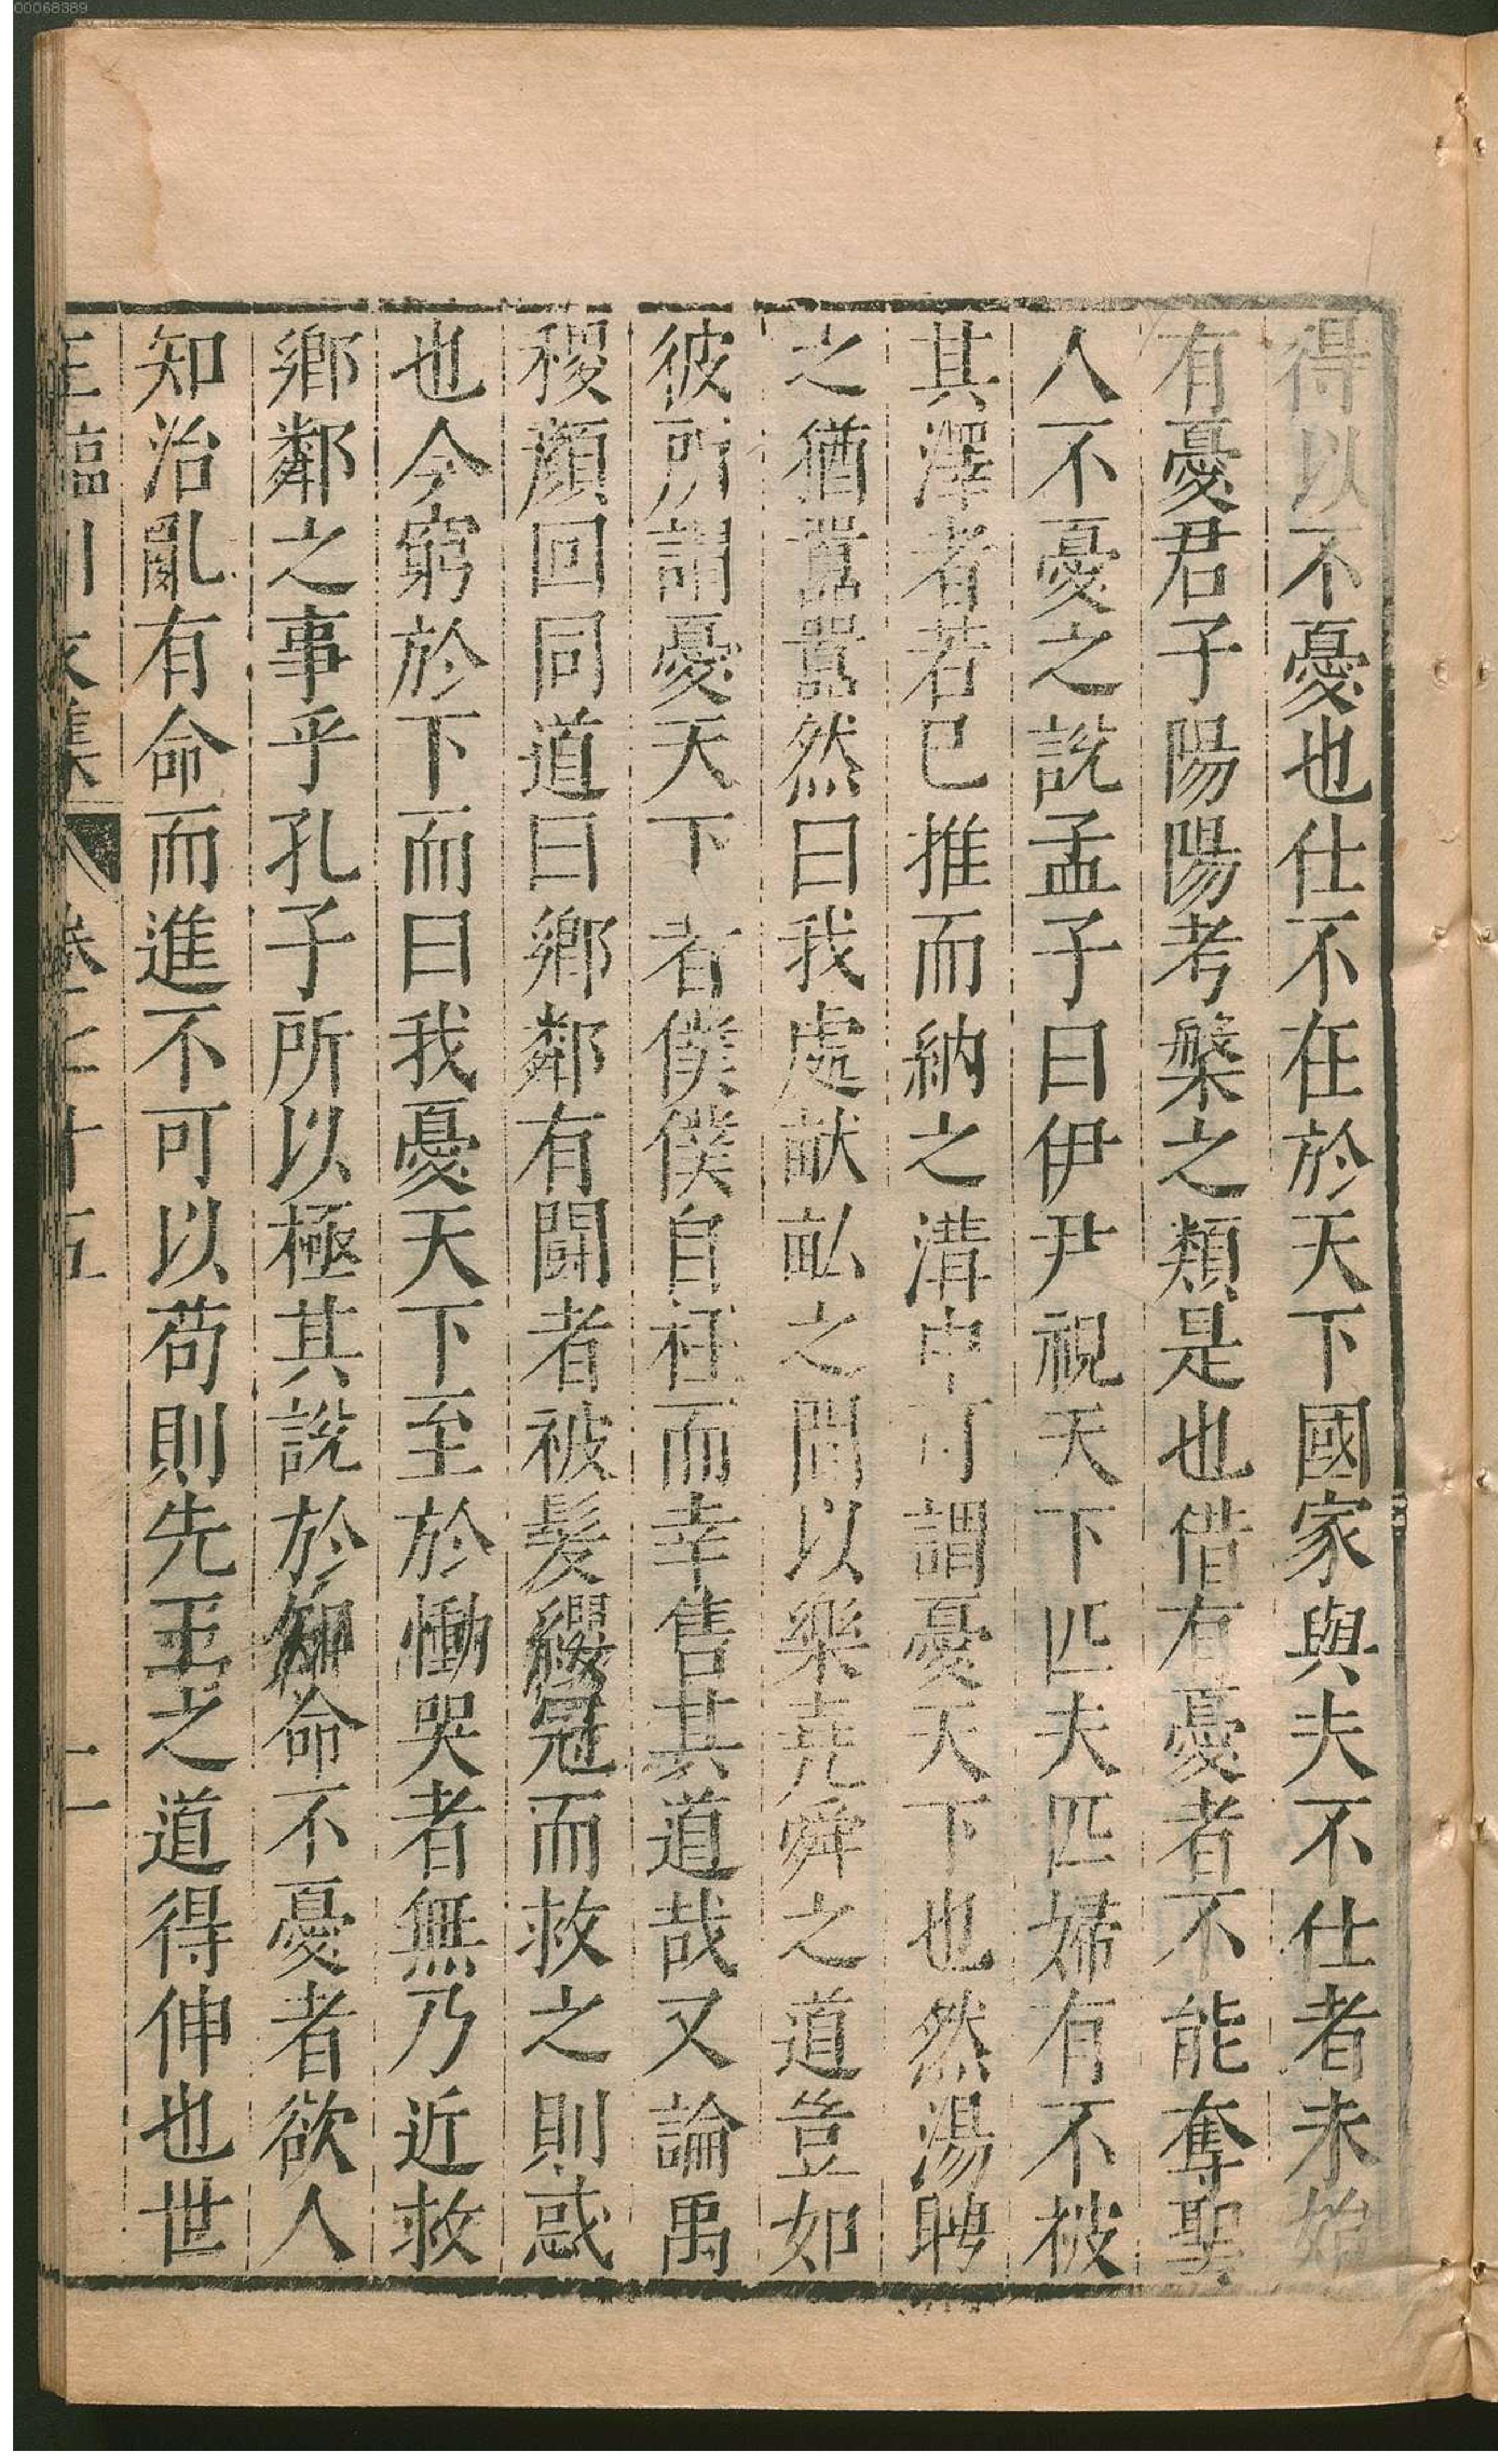 00068389
得以不憂也仕不在於天下國家與夫不仕者未始
有憂君子陽陽考槃之類是也借有憂者不能奪聖
人不憂之說孟子曰伊尹視天下匹夫匹婦有不被
其澤者若已推而納之溝中可謂憂天下也然湯聘
之猶囂囂然曰我處畎畝之間以樂堯舜之道豈如
彼所謂憂天下者僕僕自枉而幸售其道哉又論禹
稷顏回同道曰鄉鄰有鬪者被髮纓冠而救之則惑
也今窮於下而曰我憂天下至於慟哭者無乃近救
鄉鄰之事乎孔子所以極其說於知命不憂者欲人
知治亂有命而進不可以苟則先王之道得伸也世
王臨川文集 卷七十五 二